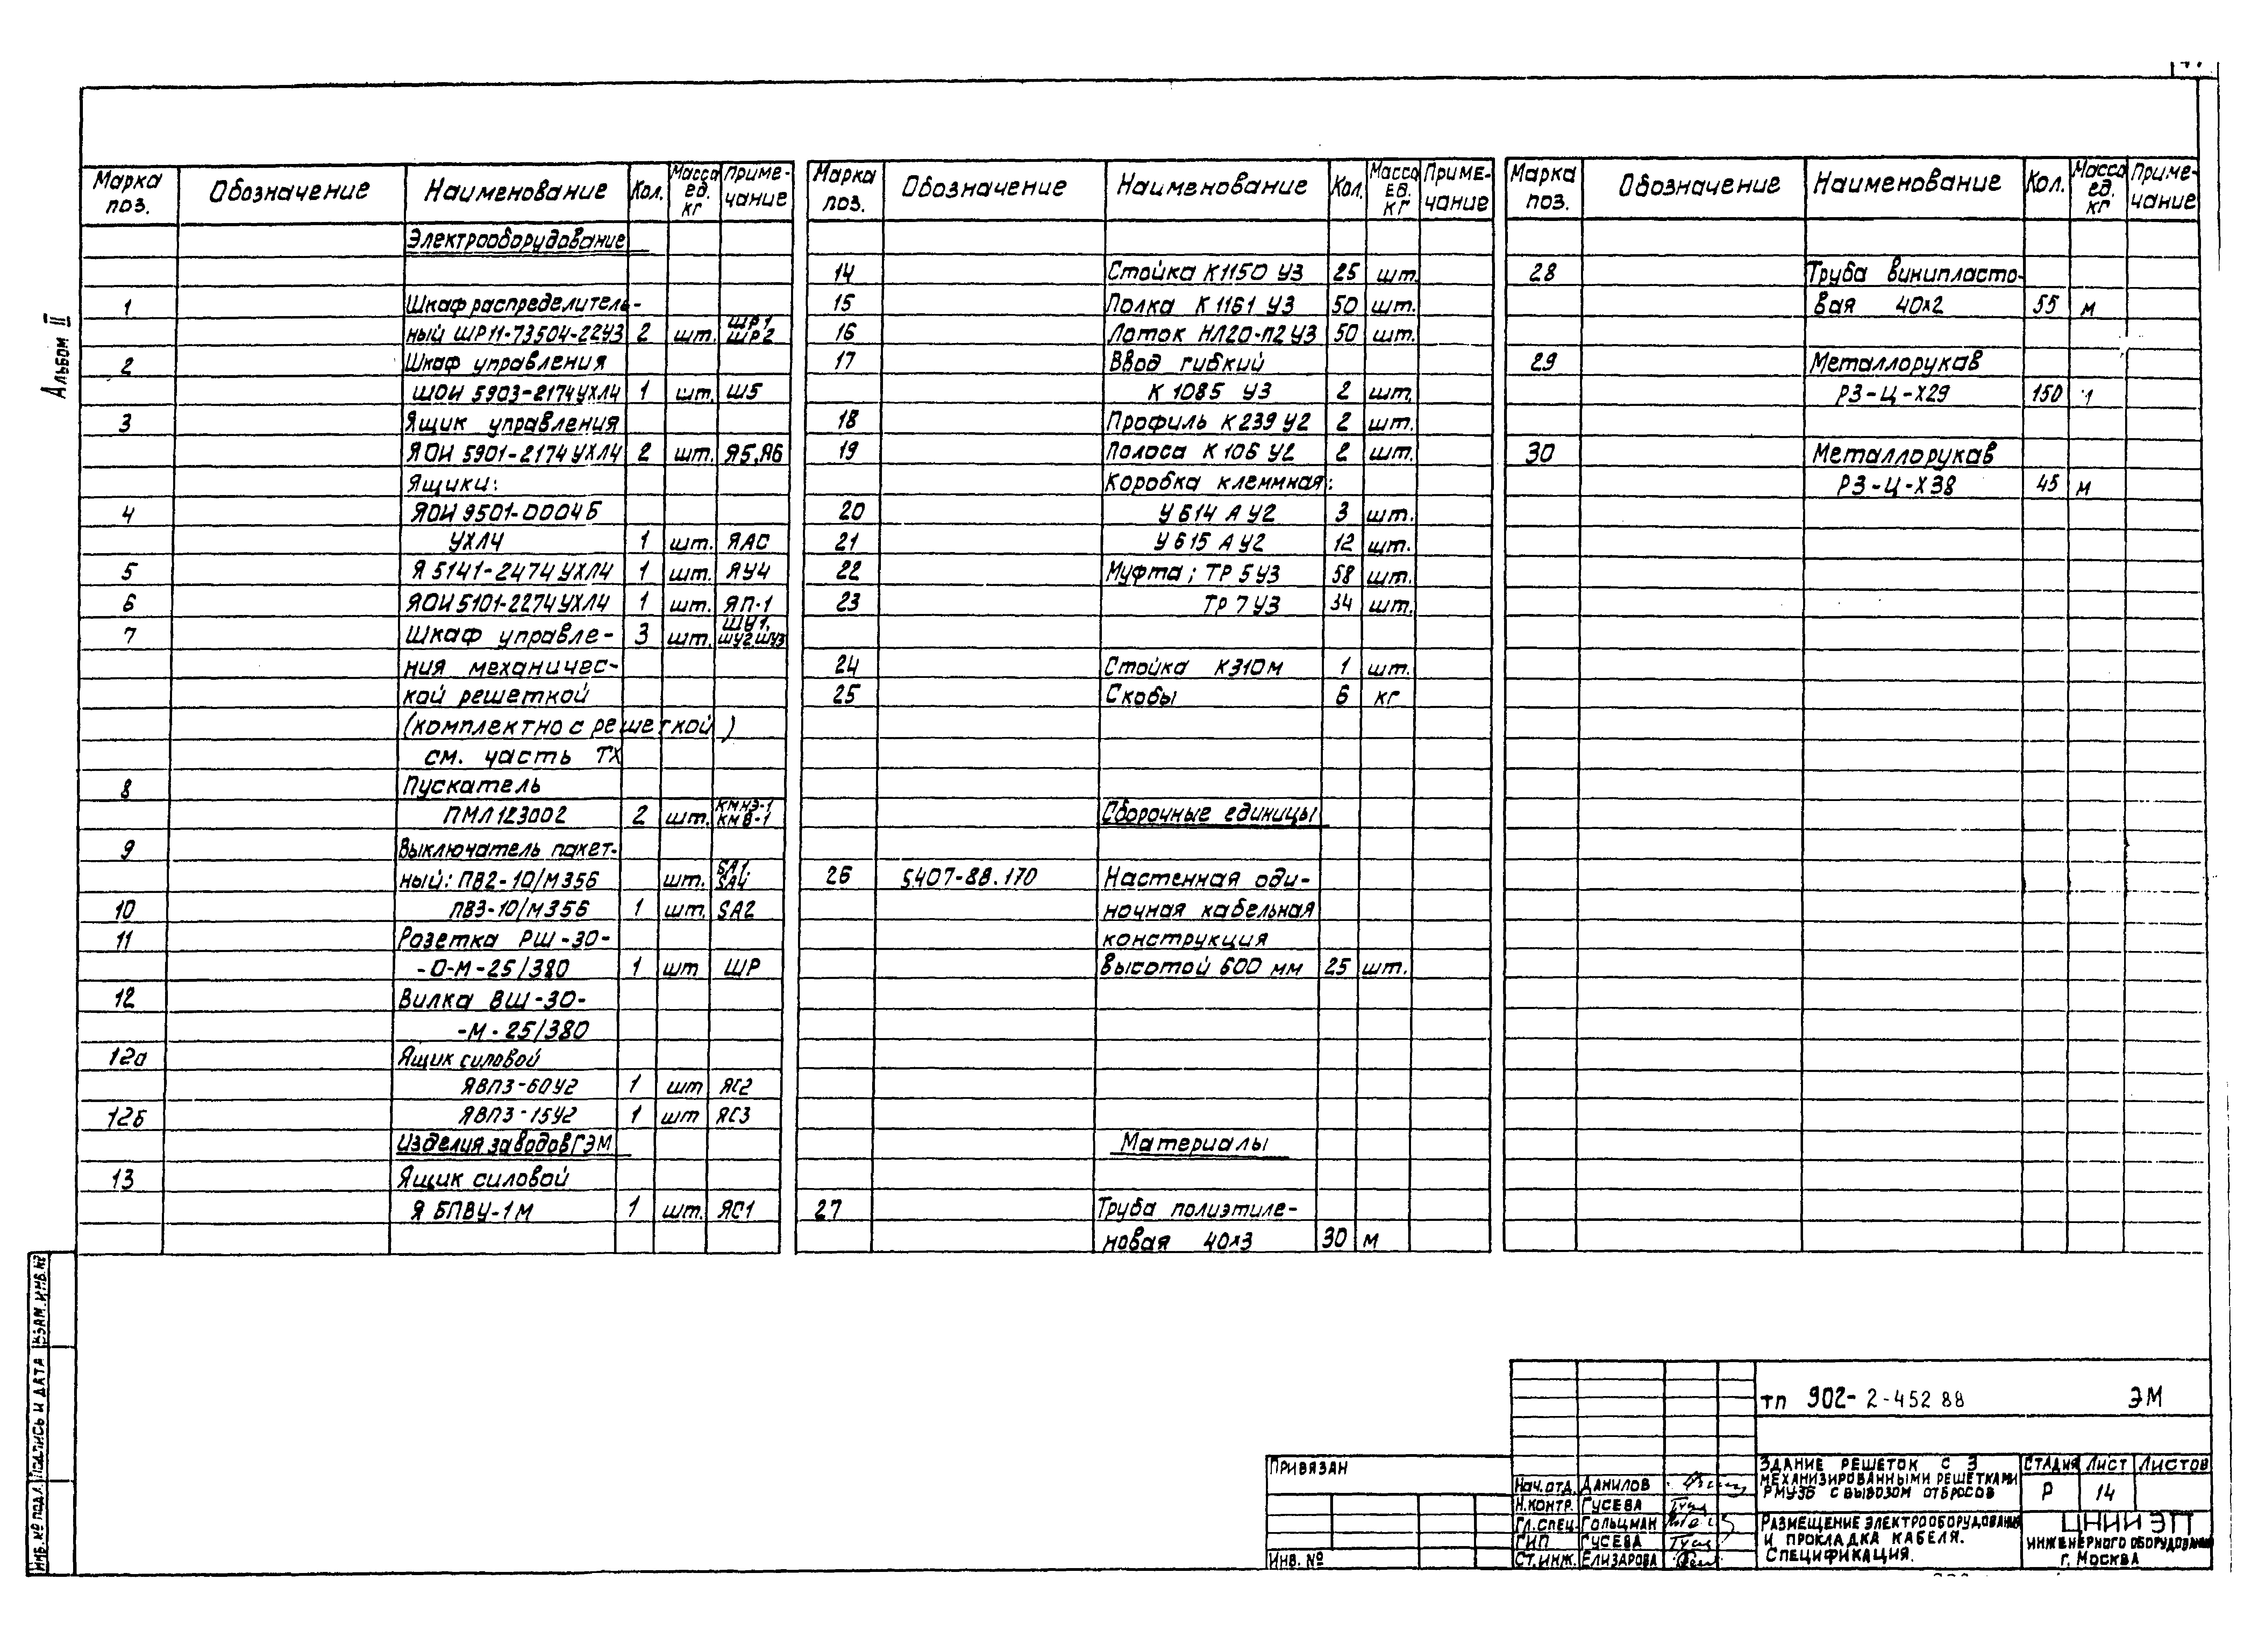 Альбом II
Марка поз. Обозначение Наименование Кол. Масса ед. кг Приме-чание
Электрооборудование
1 Шкаф распределитель-
ный ШР11-73504-22У3 2 шт. ШР1 ШР2
2 Шкаф управления
ШОИ 5903-2174УХЛ4 1 шт. Ш5
3 Ящик управления
ЯОИ 5901-2174УХЛ4 2 шт. Я5,Я6
Ящики:
4 ЯОИ 9501-0004Б
УХЛ4 1 шт. ЯАС
5 Я 5141-2474УХЛ4 1 шт. ЯУ4
6 ЯОИ5101-2274УХЛ4 1 шт. ЯП-1
7 Шкаф управле- 3 шт. ШУ1, ШУ2,ШУ3
ния механичес-
кой решеткой
(комплектно с решеткой)
см. часть ТХ
8 Пускатель
ПМЛ123002 2 шт. КМНЭ-1 КМВ-1
9 Выключатель пакет-
ный: ПВ2-10/М356 шт. SA1, SA4
10 ПВ3-10/М356 1 шт. SA2
11 Розетка РШ-30-
-О-М-25/380 1 шт ШР
12 Вилка ВШ-30-
-М-25/380
12а Ящик силовой
ЯВПЗ-60У2 1 шт ЯС2
12б ЯВПЗ-15У2 1 шт ЯС3
Изделия заводов ГЭМ
13 Ящик силовой
Я БПВУ-1М 1 шт. ЯС1
Марка поз. Обозначение Наименование Кол. Масса ед. кг Приме-чание
14 Стойка К1150 У3 25 шт.
15 Полка К1161 У3 50 шт.
16 Лоток НЛ20-П2У3 50 шт.
17 Ввод гибкий
К 1085 У3 2 шт.
18 Профиль К239 У2 2 шт.
19 Полоса К106 У2 2 шт.
Коробка клеммная:
20 У614 А У2 3 шт.
21 У615 А У2 12 шт.
22 Муфта; ТР 5 У3 58 шт.
23 ТР 7 У3 34 шт.
24 Стойка К310м 1 шт.
25 Скобы 6 кг
Сборочные единицы
26 5.407-88.170 Настенная оди-
ночная кабельная
конструкция
высотой 600 мм 25 шт.
Материалы
27 Труба полиэтиле-
новая 40х3 30 м
Марка поз. Обозначение Наименование Кол. Масса ед. кг Приме-чание
28 Труба винипласто-
вая 40х2 55 м
29 Металлорукав
РЗ-Ц-Х29 150
30 Металлорукав
РЗ-Ц-Х38 45 м
Инв. № подл. Подпись и дата Взам. инв. №
Привязан
Инв. №
Нач. отд. Данилов
Н. контр. Гусева
Гл. спец. Гольцман
ГИП Гусева
Ст. инж. Елизарова
тп 902-2-452 88 ЭМ
Здание решеток с 3
механизированными решетками
РМУ3Б с вывозом отбросов
Стадия Лист Листов
Р 14
Размещение электрооборудования
и прокладка кабеля.
Спецификация.
ЦНИИЭП
инженерного оборудования
г. Москва